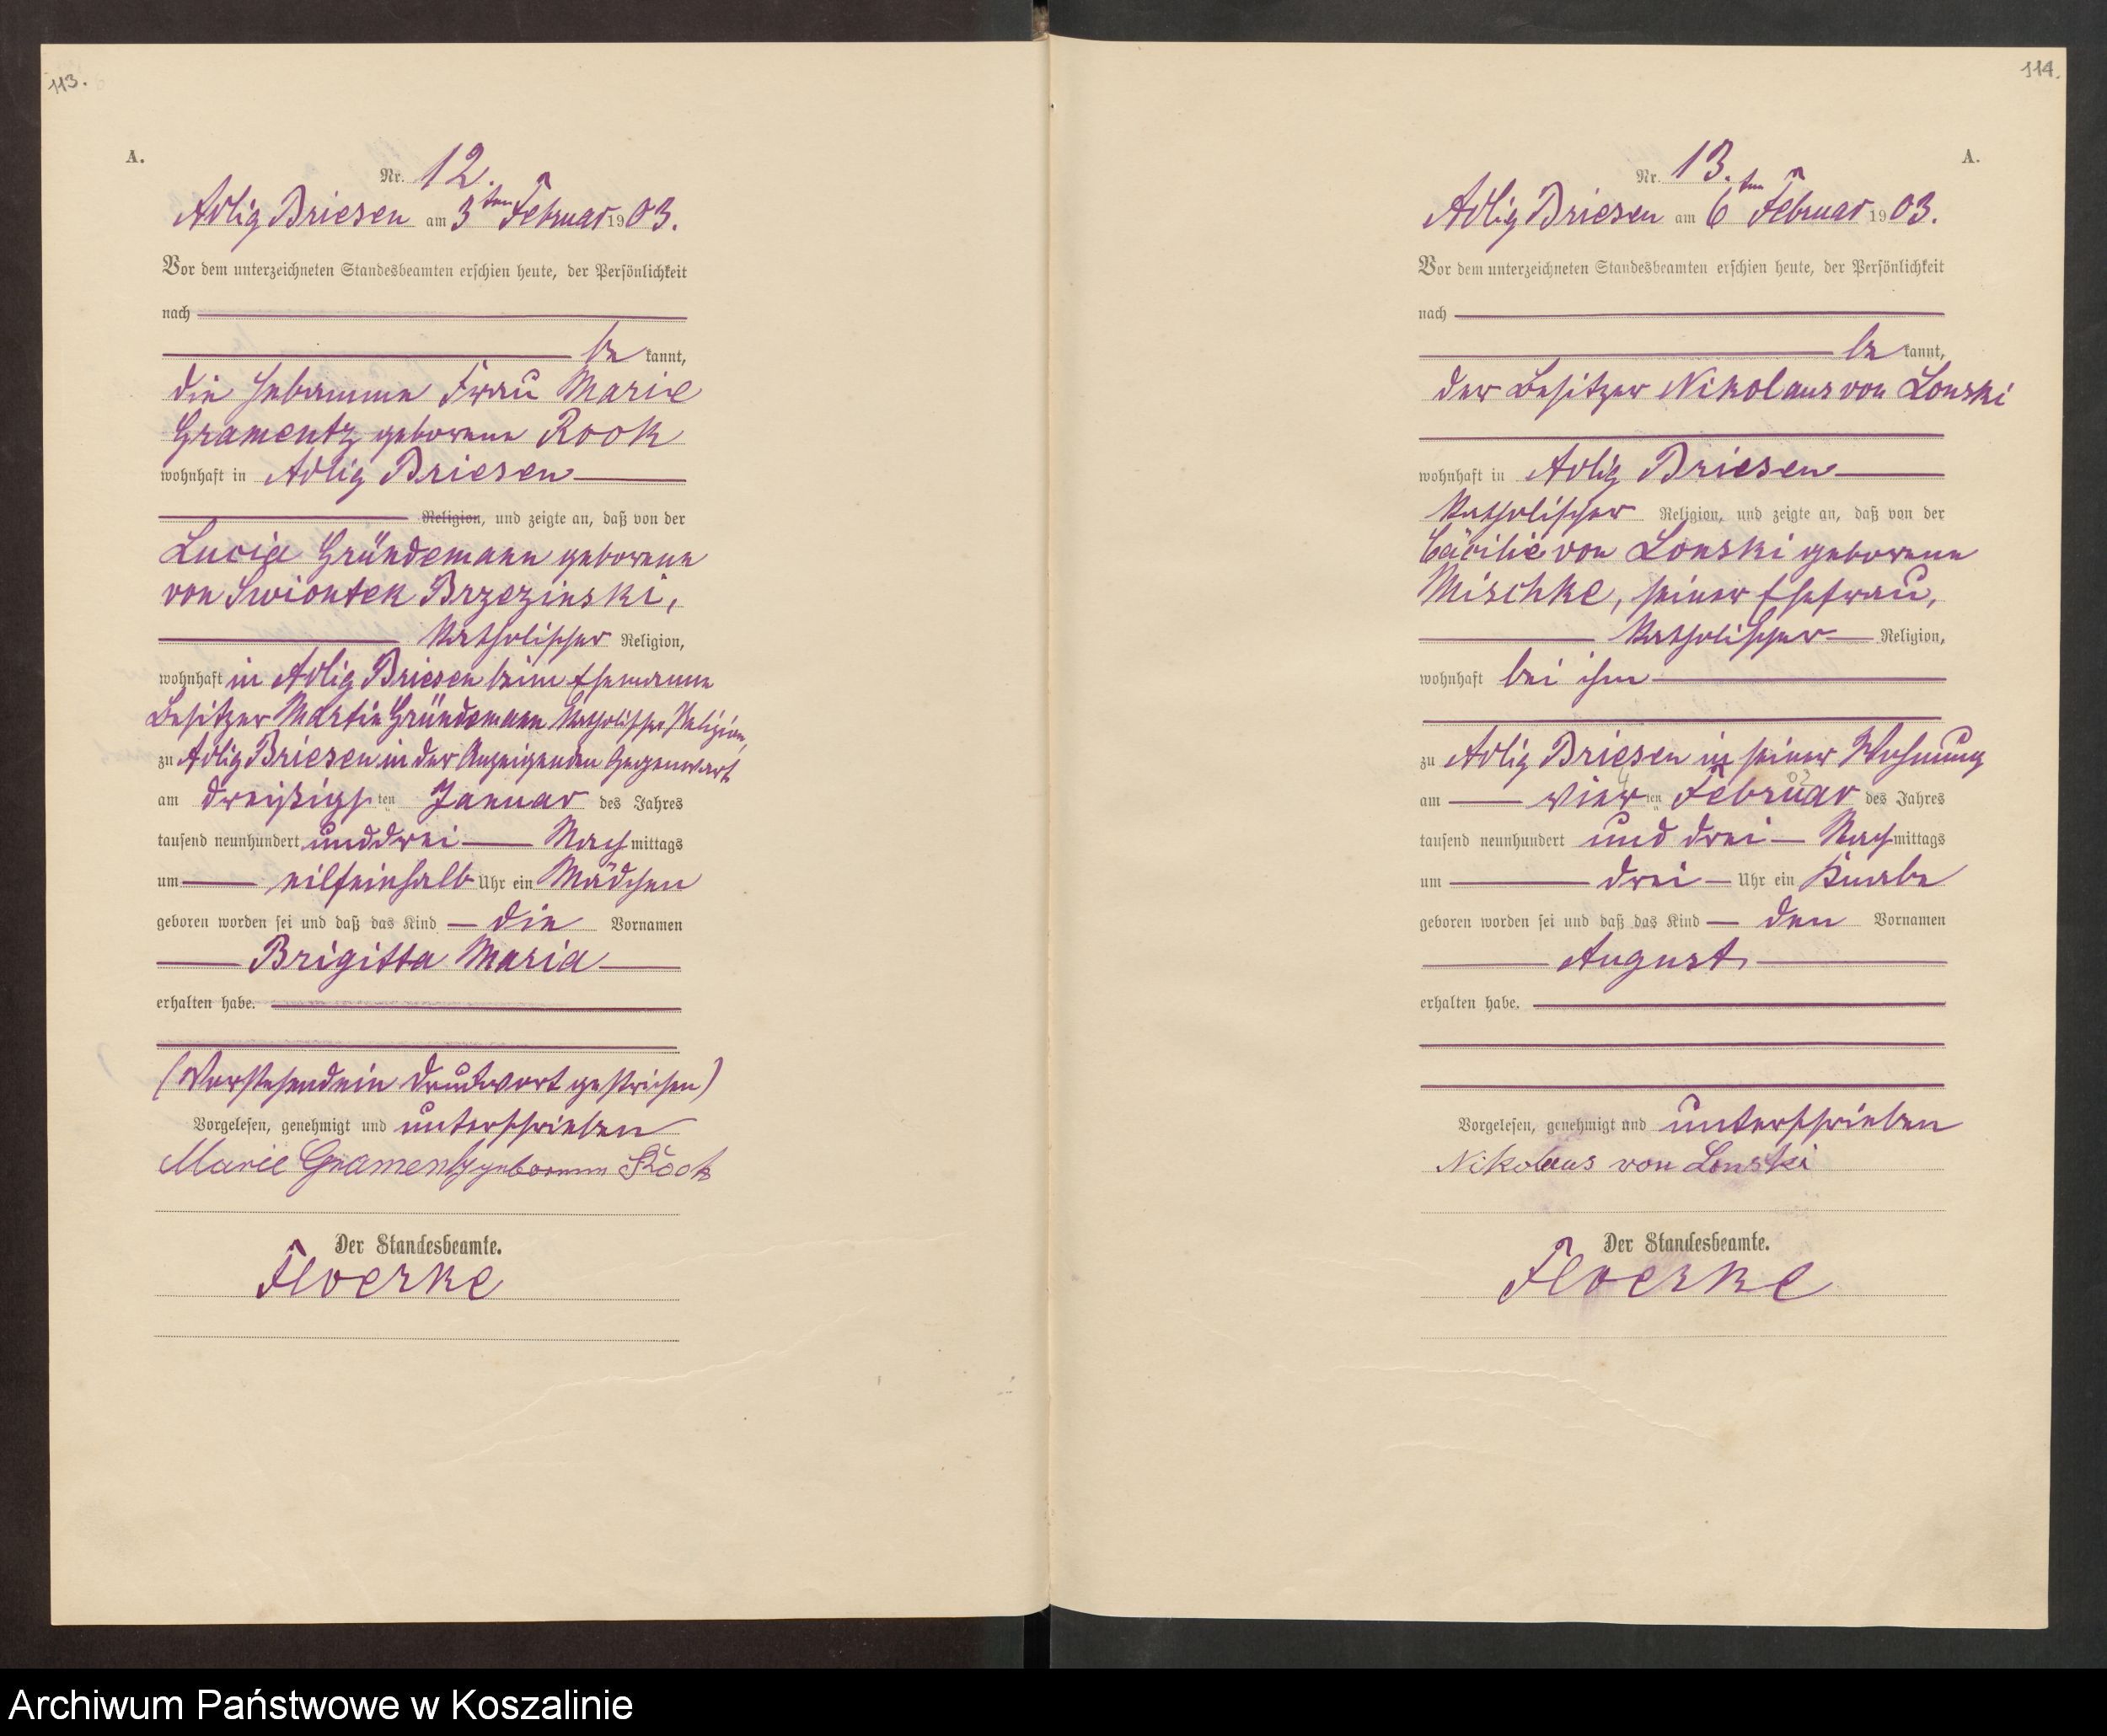 113.
A.
Nr. 12.
Adlig Briesen am 3ten Februar 1903.
Vor dem unterzeichneten Standesbeamten erschien heute, der Persönlichkeit
nach
be kannt,
die Hebamme Frau Marie
Gramentz geborene Rook
wohnhaft in Adlig Briesen
Religion, und zeigte an, daß von der
Lucia Gründemann geborene
von Swiontek Brzezinski,
katholischer Religion,
wohnhaft in Adlig Briesen beim Ehemanne
Besitzer Martin Gründemann katholischer Religion,
zu Adlig Briesen in der Anzeigenden Gegenwart
am dreißigsten Januar des Jahres
tausend neunhundert und drei Nachmittags
um eilfeinhalb Uhr ein Mädchen
geboren worden sei und daß das Kind die Vornamen
Brigitta Maria
erhalten habe.
(Vorstehend ein Druckwort gestrichen)
Vorgelesen, genehmigt und unterschrieben
Marie Gramentz geborene Rook
Der Standesbeamte.
Floerke
114.
A.
Nr. 13.
Adlig Briesen am 6ten Februar 1903.
Vor dem unterzeichneten Standesbeamten erschien heute, der Persönlichkeit
nach
be kannt,
der Besitzer Nikolaus von Lonski
wohnhaft in Adlig Briesen
katholischer Religion, und zeigte an, daß von der
Cäcilie von Lonski geborene
Mischke, seiner Ehefrau,
katholischer Religion,
wohnhaft bei ihm
zu Adlig Briesen in seiner Wohnung
am vierten Februar des Jahres
tausend neunhundert und drei Nachmittags
um drei Uhr ein Knabe
geboren worden sei und daß das Kind den Vornamen
August
erhalten habe.
Vorgelesen, genehmigt und unterschrieben
Nikolaus von Lonski
Der Standesbeamte.
Floerke
Archiwum Państwowe w Koszalinie